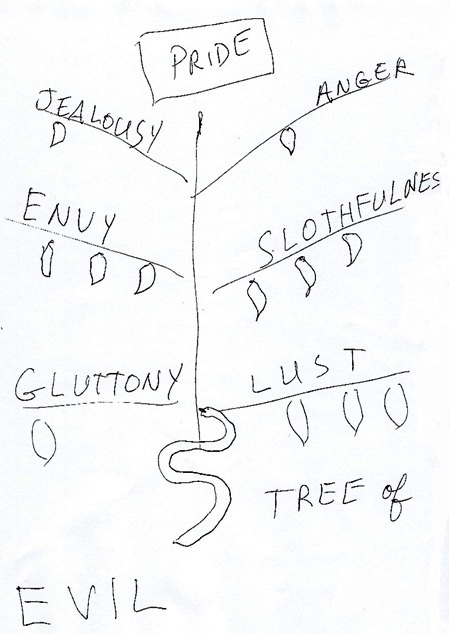 PRIDE
JEALOUSY
ANGER
ENVY
SLOTHFULNES
GLUTTONY
LUST
TREE of
EVIL